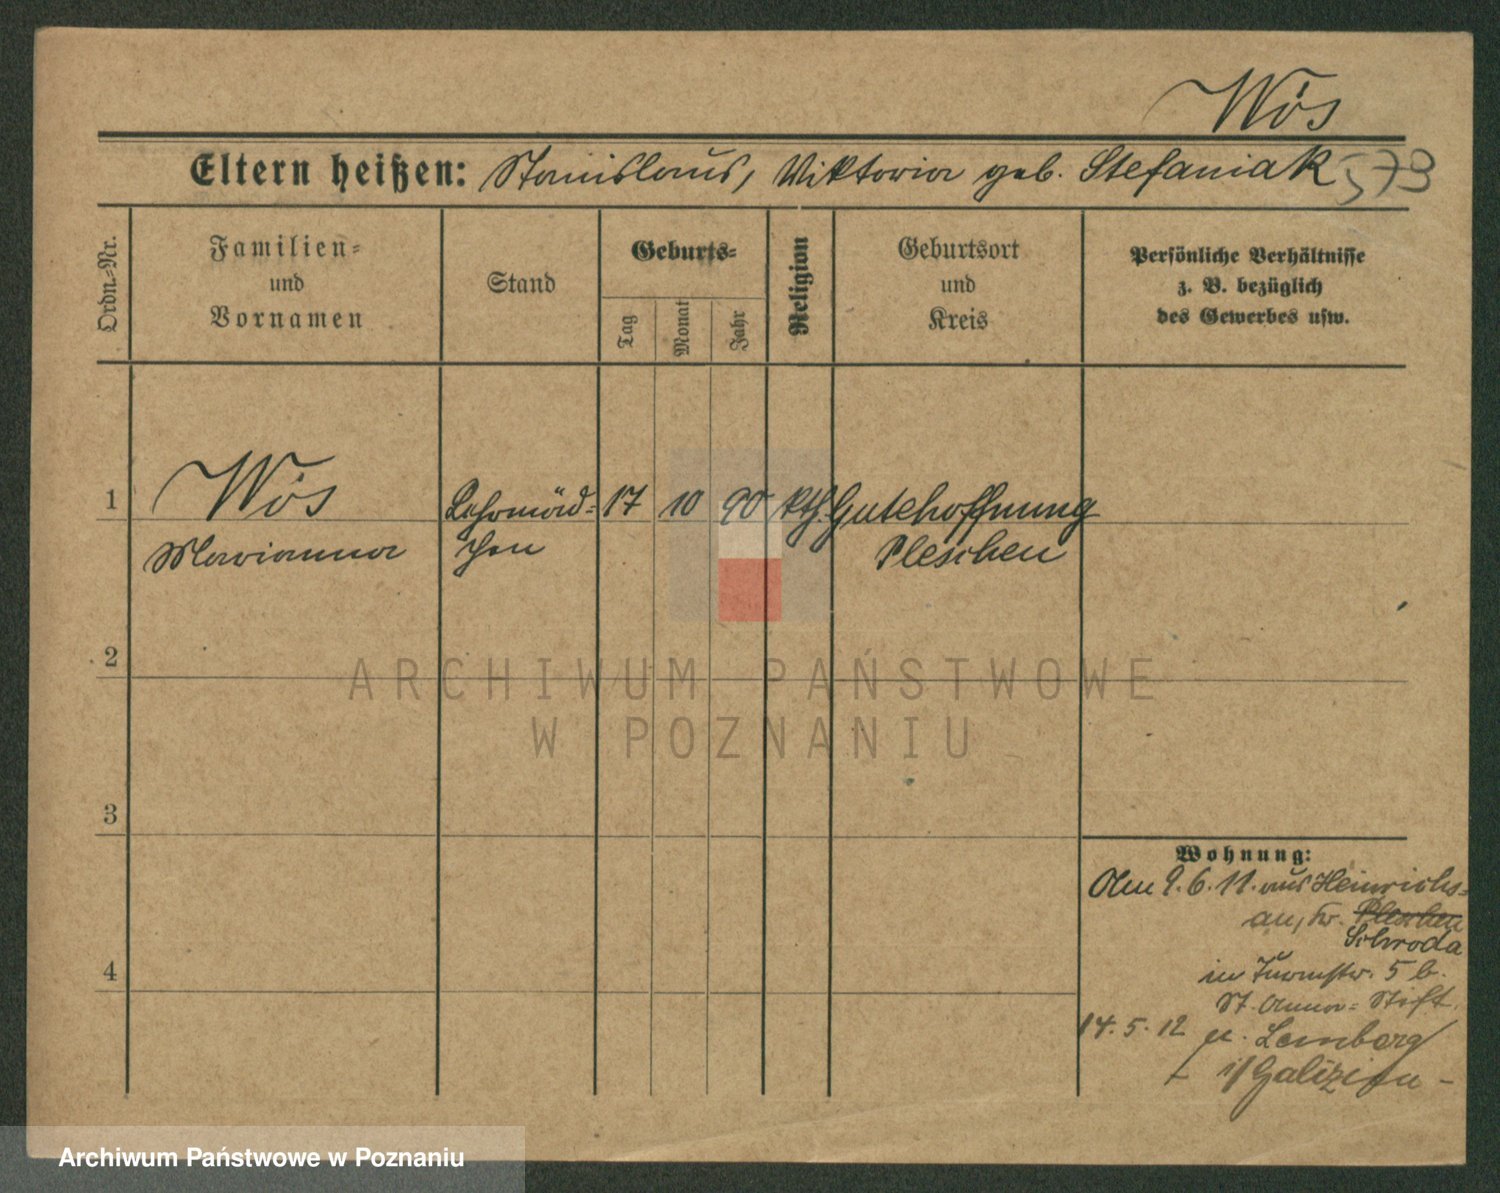 Wós
Eltern heißen: Stanislaus, Viktoria geb. Stefaniak 573
Ordn.-Nr.
Familien-
und
Vornamen
Stand
Geburts-
Tag
Monat
Jahr
Religion
Geburtsort
und
Kreis
Persönliche Verhältnisse
z. B. bezüglich
des Gewerbes usw.
1 Wós Lehrmäd- 17 10 90 kth. Gutehoffnung
Marianna chen Pleschen
2
3
4
Wohnung:
Am 9. 6. 11. aus Heinrichs-
au, Kr. Pleschen
Schroda
in Turmstr. 5 b.
St. Anna-Stift.
14. 5. 12 n. Lemberg
i/Galizien -
ARCHIWUM PAŃSTWOWE
W POZNANIU
Archiwum Państwowe w Poznaniu